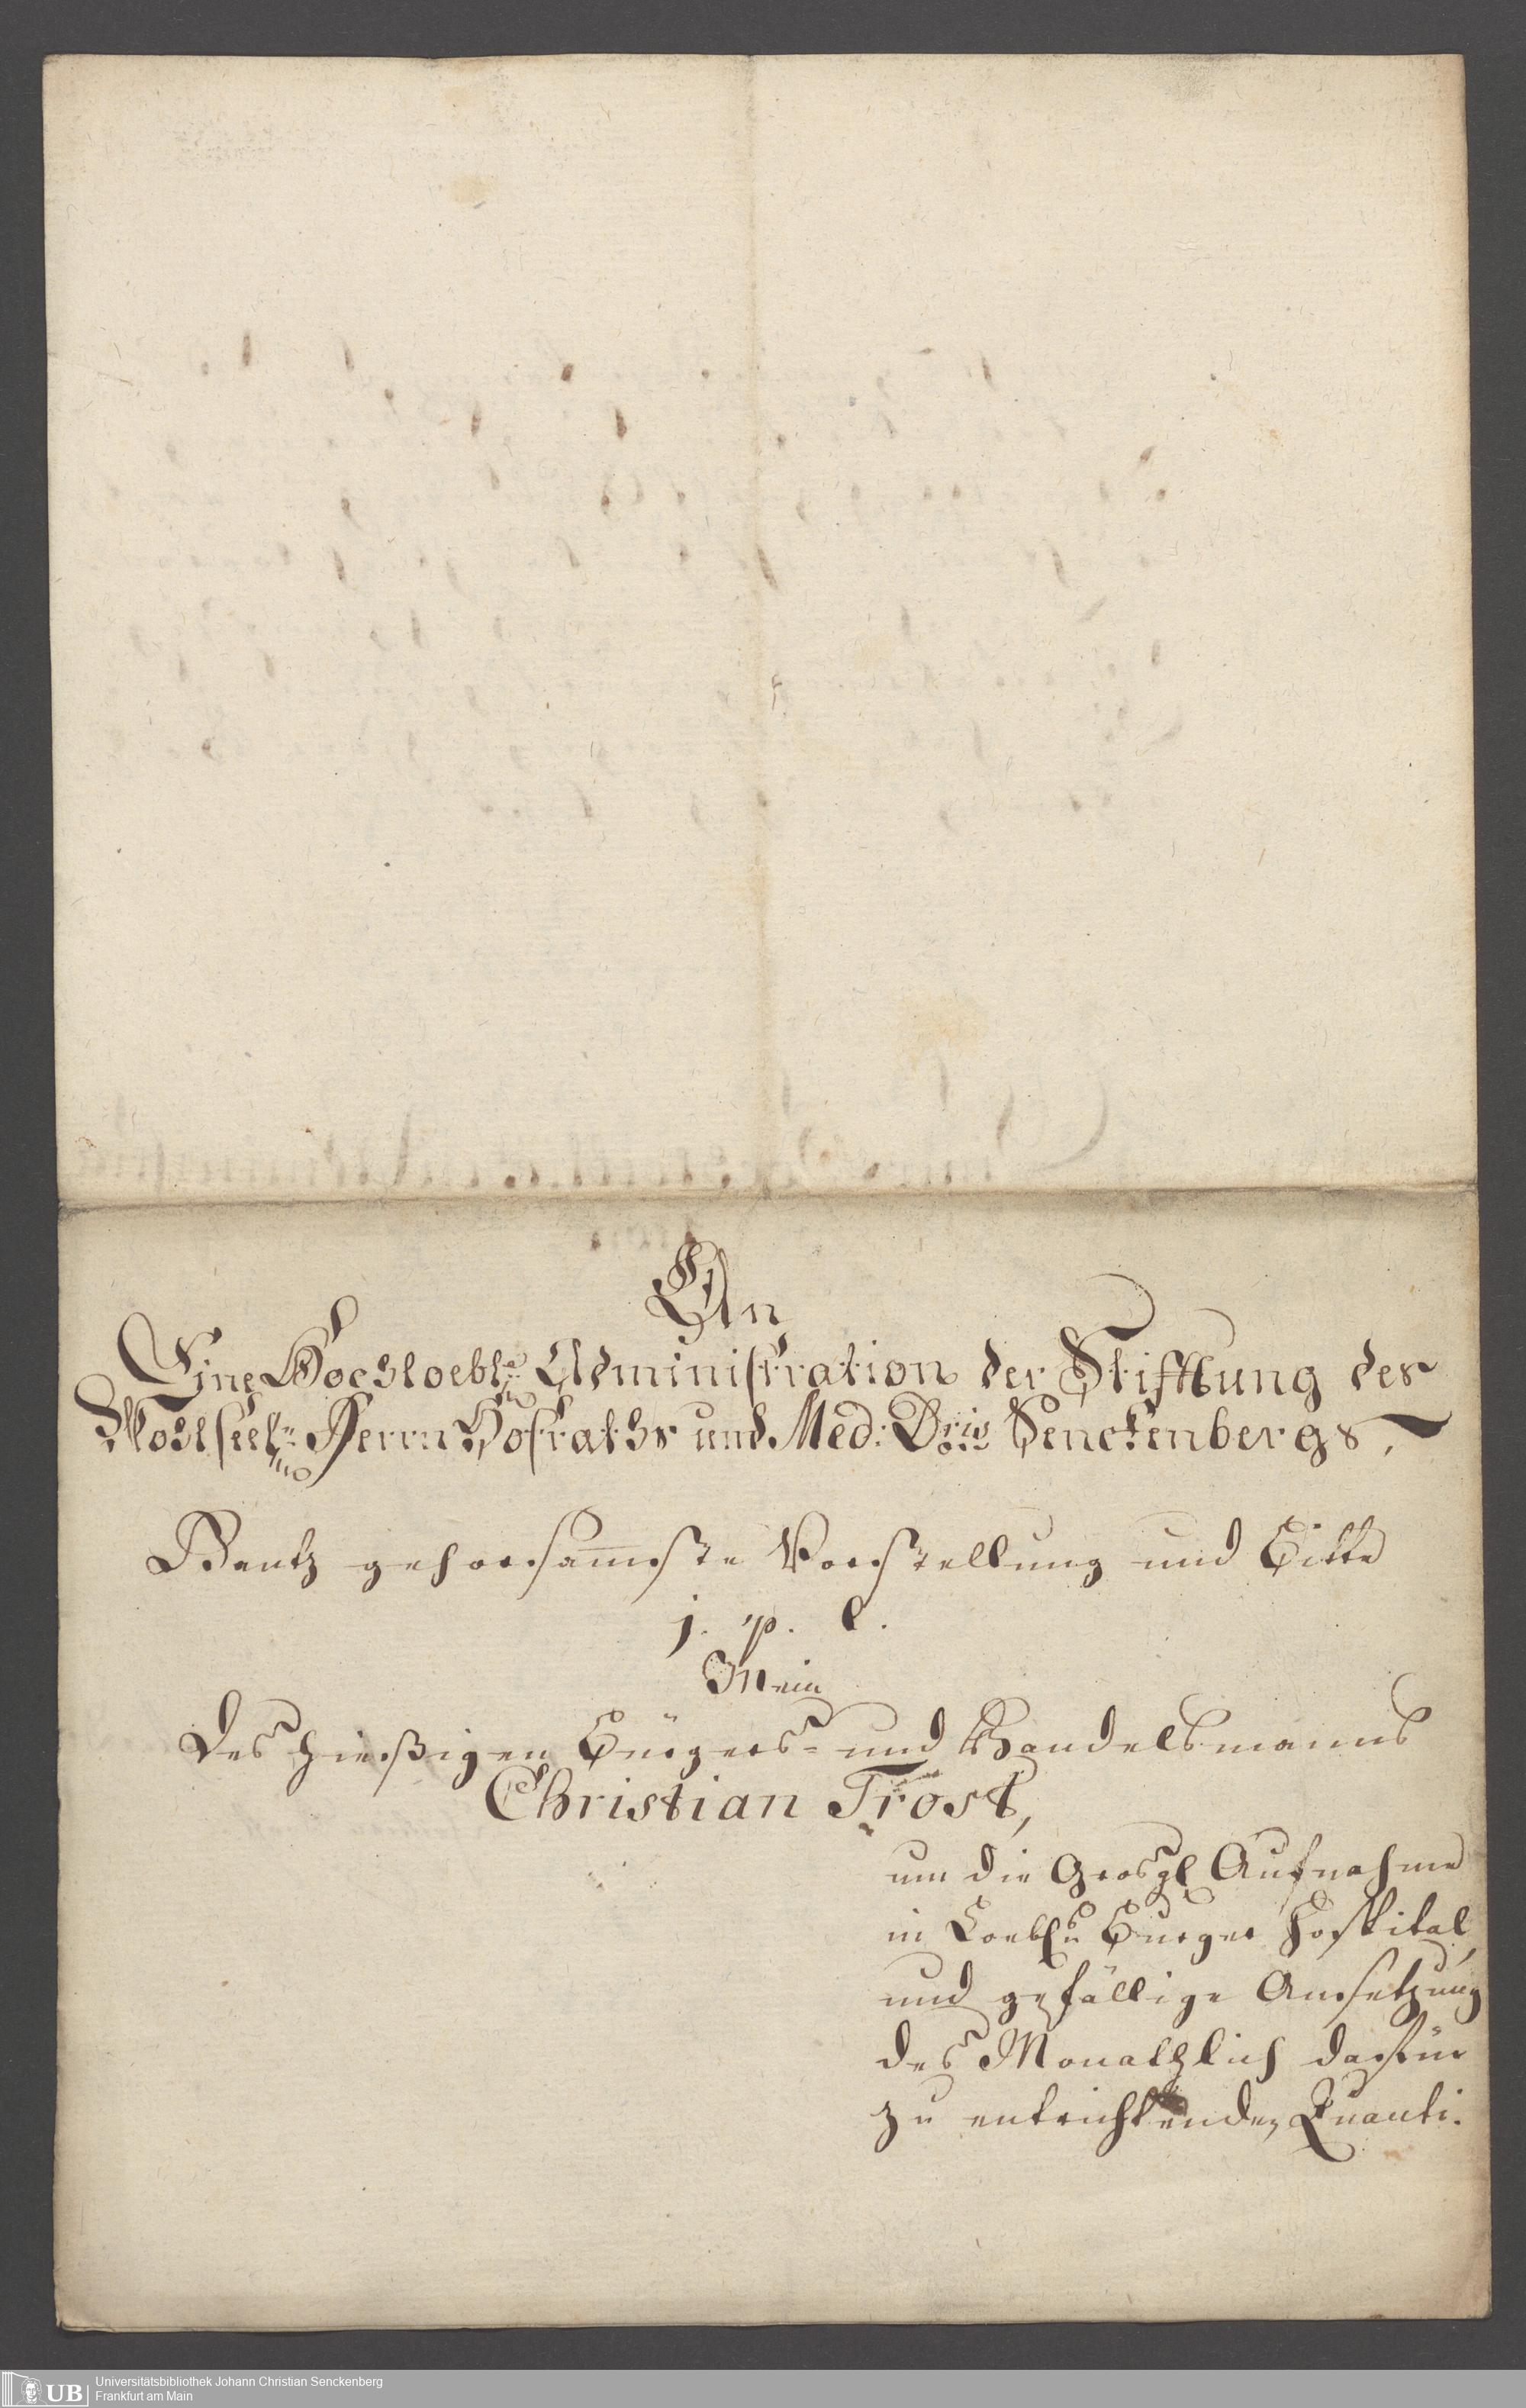 An
Eine Hochloebl: Administration der Stifftung des
Wohlseel: Herrn Hofraths und Med: Dris Senckenbergs,
Gantz gehorsam̄ste Vorstellung und Bitte
j. p. l.
Mein
Des hießigen Bürgers- und Handelsmanns
Christian Trost,
um die Grosgl Aufnahme
in Loebln Burger Hospital,
und gefällige Ansetzung
des Monathlich dafür
zu entrichtenden Quanti.
UB
Universitätsbibliothek Johann Christian Senckenberg
Frankfurt am Main